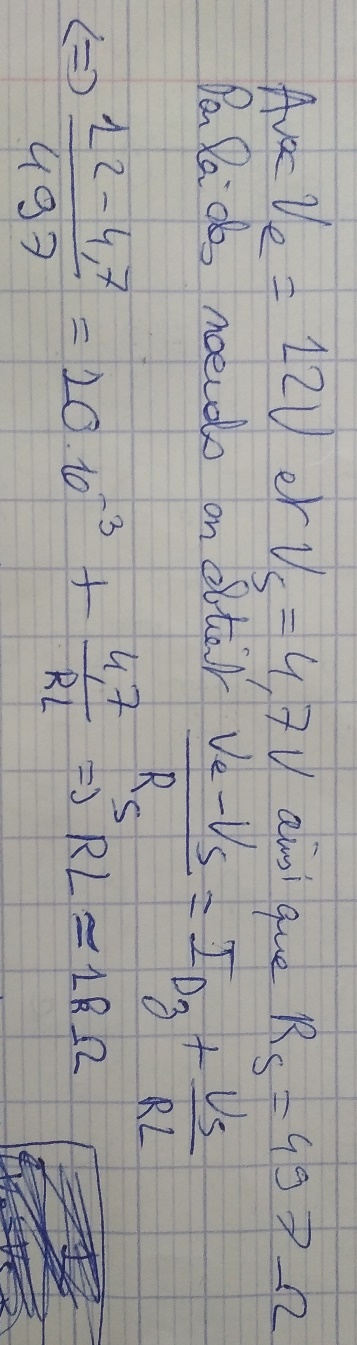 Avec Ve = 12V et Vs = 4,7V ainsi que Rs = 497 Ω
Par loi des noeuds on obtient (Ve - Vs)/Rs = I_Dz + Vs/RL
⇔ (12 - 4,7)/497 = 10.10⁻³ + 4,7/RL ⇒ RL ≃ 18 Ω